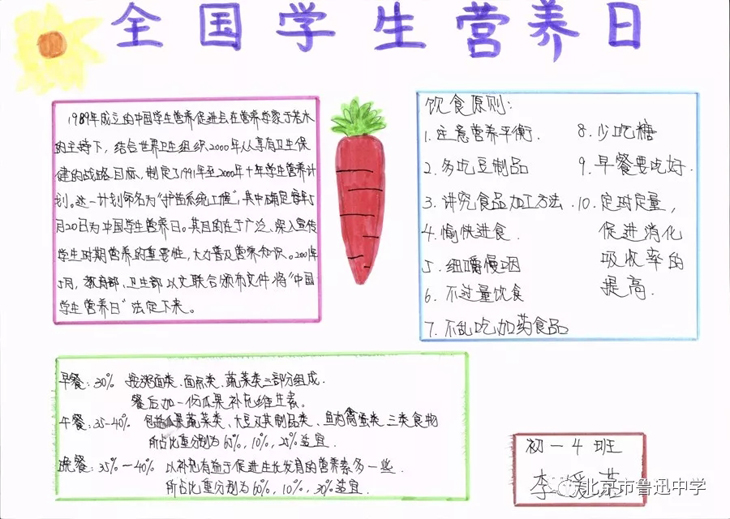 全国学生营养日
1989年成立的中国学生营养促进会在营养学家于若木
的主持下，结合世界卫生组织2000年人人享有卫生保
健的战略目标，制定了1991年至2000年十年学生营养计
划。这一计划命名为“护苗系统工程”，其中确定每年5
月20日为中国学生营养日。其目的在于广泛、深入宣传
学生时期营养的重要性，大力普及营养知识。2001年
5月，教育部、卫生部以文联合颁布文件将“中国
学生营养日”法定下来。
饮食原则:
1.注意营养平衡.
2.多吃豆制品
3.讲究食品加工方法.
4.愉快进食.
5.细嚼慢咽
6.不过量饮食
7.不乱吃加药食品
8.少吃糖
9.早餐要吃好.
10.定时定量，
促进消化
吸收率的
提高.
早餐: 30% 按粥面类、面点类、蔬菜类三部分组成.
餐后加一份瓜果补充维生素.
午餐: 35-40% 包括瓜果蔬菜类、大豆及其制品类、鱼肉禽蛋类、三类食物
所占比重分别为65%, 10%, 25%适宜.
晚餐: 35%—40% 以补充有益于促进生长发育的营养素多一些.
所占比重分别为60%, 10%, 30%适宜.
初一4班
李媛
北京市鲁迅中学